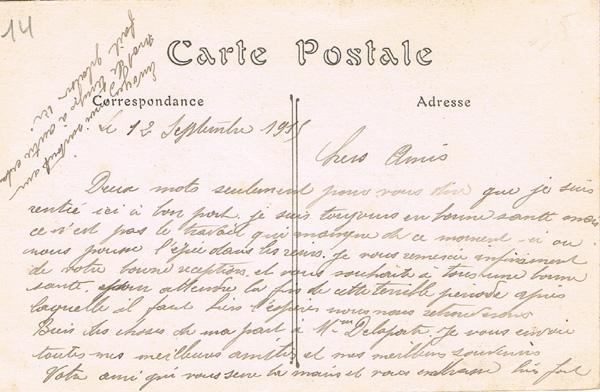 14
Carte Postale
Correspondance
Adresse
Le 12 Septembre 1915
Chers Amis
Deux mots seulement pour vous dire que je suis
rentré ici à bon port, je suis toujours en bonne santé mais
ce n'est pas le travail qui manque de ce moment-ci ou
nous pousse l'épée dans les reins. Je vous remercie infiniment
de votre bonne réception, et vous souhaite à tous une bonne
santé, attendre la fin de cette terrible période après
laquelle il faut bien l'espérer nous nous retrouverons
Bien des choses de ma part à Mme Delaporte. Je vous envoie
toutes mes meilleures amitiés et mes meilleurs souvenirs
Votre ami qui vous serre la main et vous embrasse bien fort
Envoyez
mot de
fait plaisir ici.